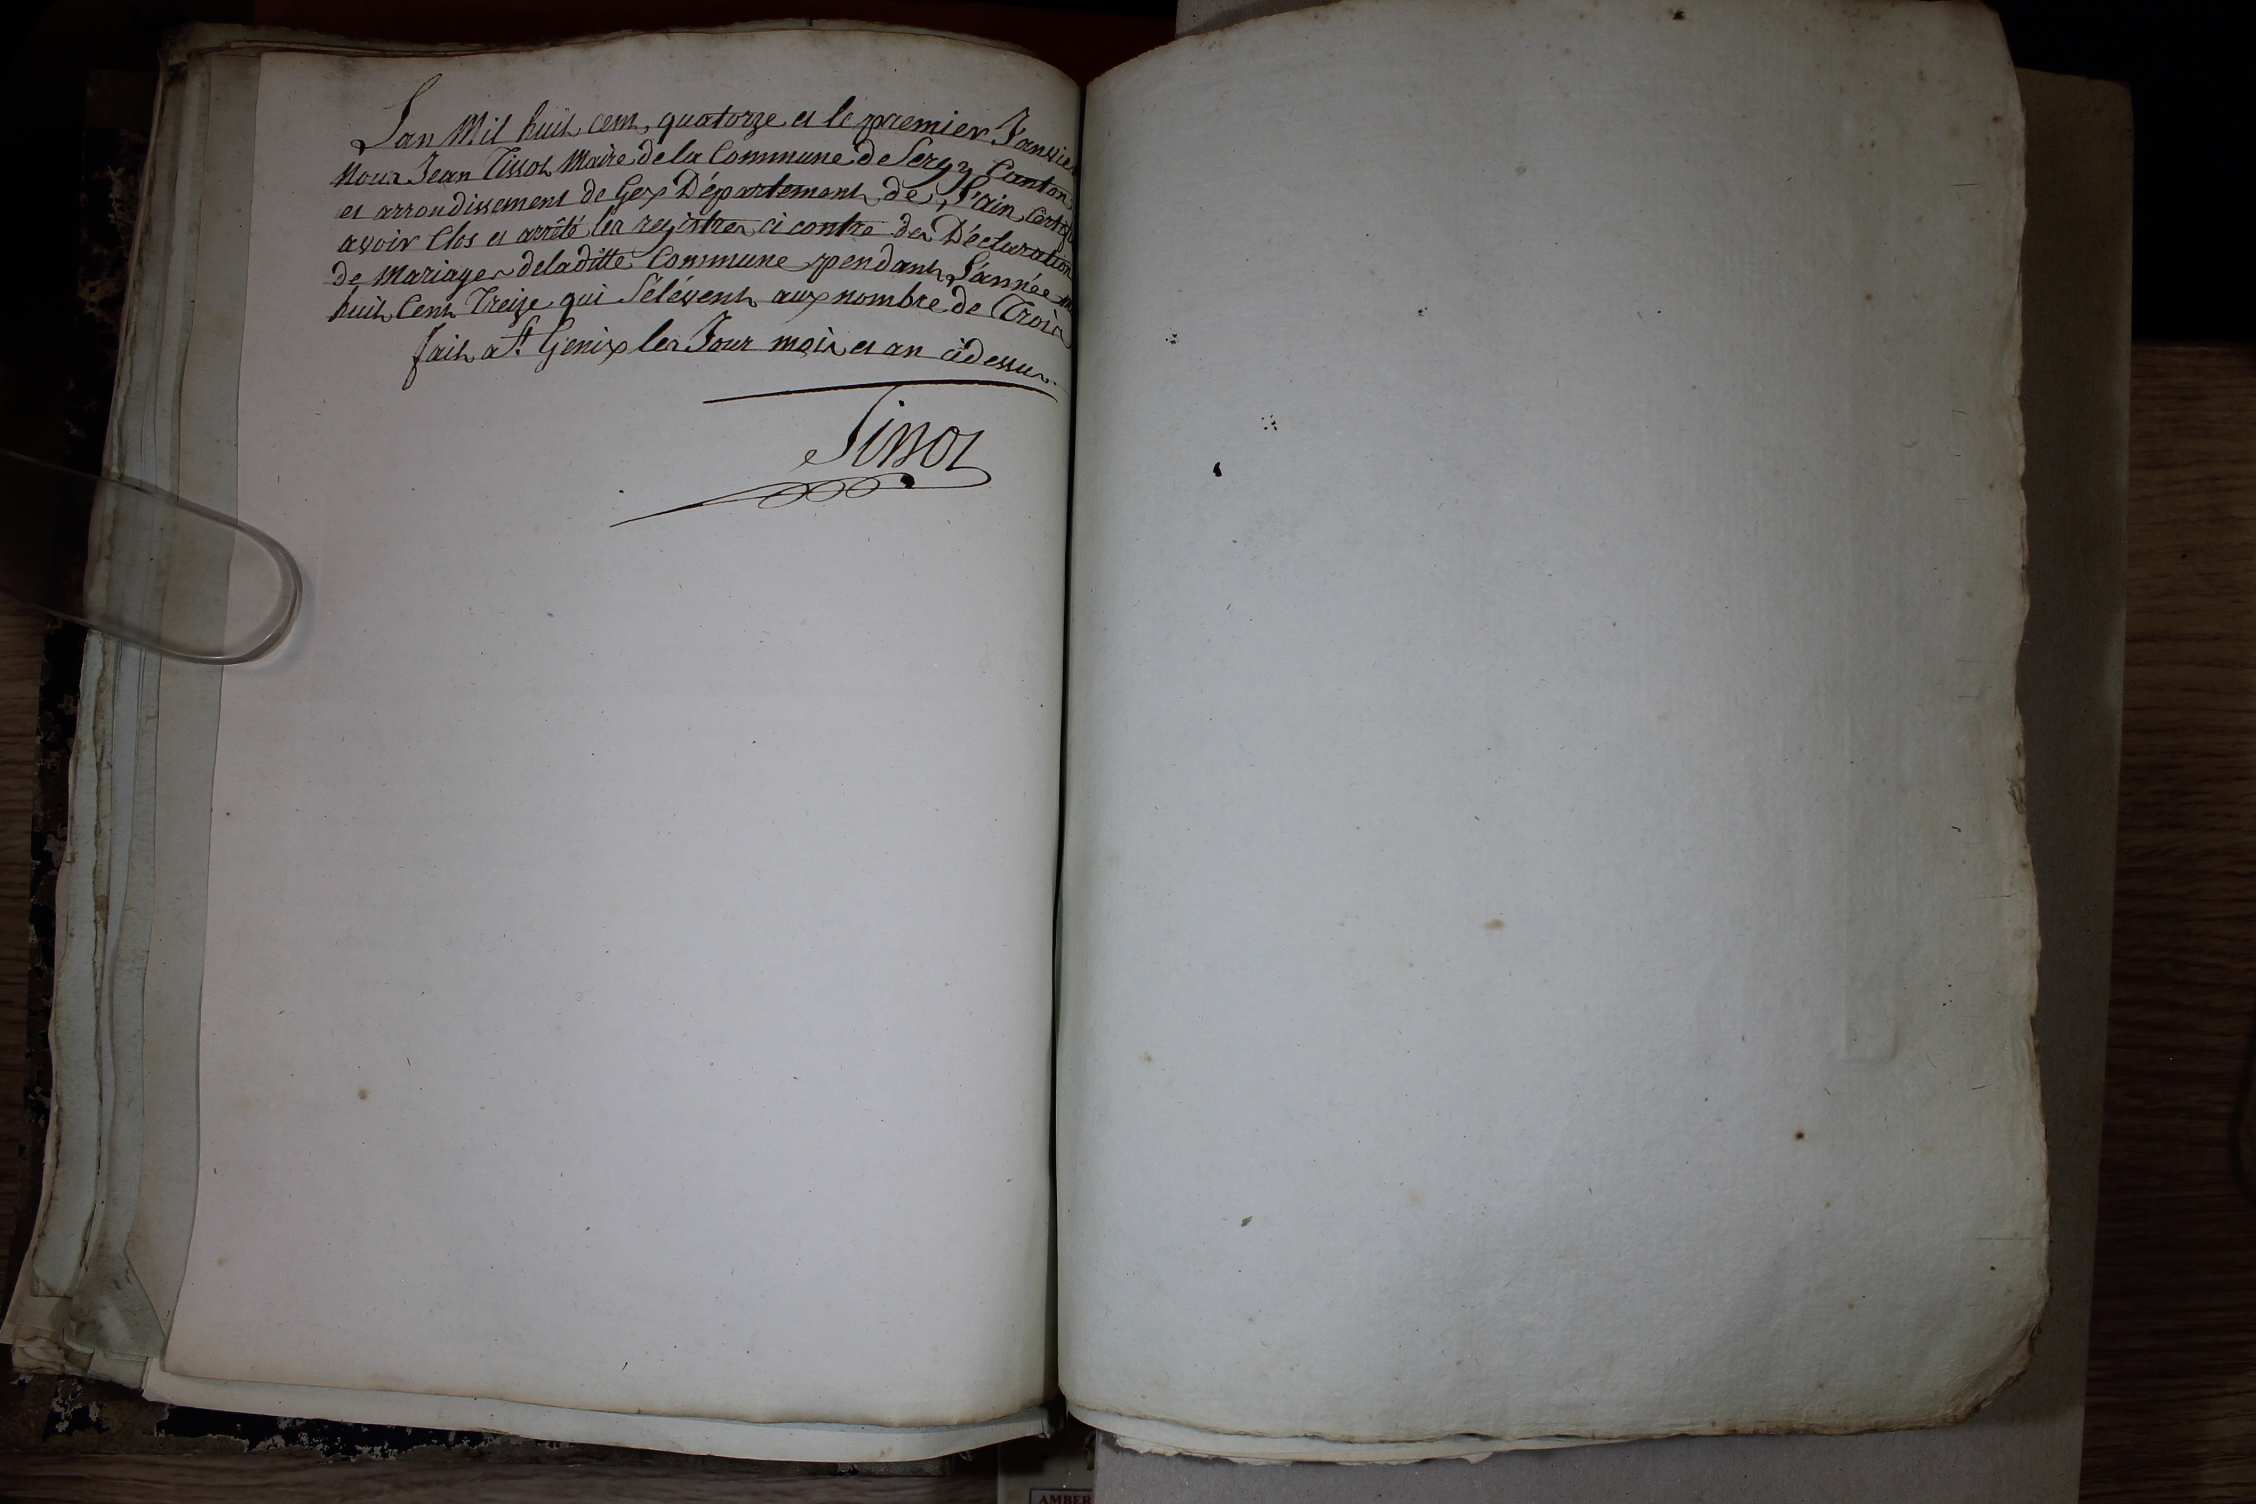 Lan Mil huit cent quatorze et le premier Janvier
Nous Jean Tissot Maire de la Commune de Sergy Canton
et arrondissement de Gex Département de L'ain Certif
avoir Clos et arrêté les registres ci contre des Déclaration
de Mariages de laditte Commune pendant L'année m
huit Cent Treize qui S'élévent aux nombre de Trois
fait a St. Genix les Jour mois et an cidessus.
Tissot
AMBER